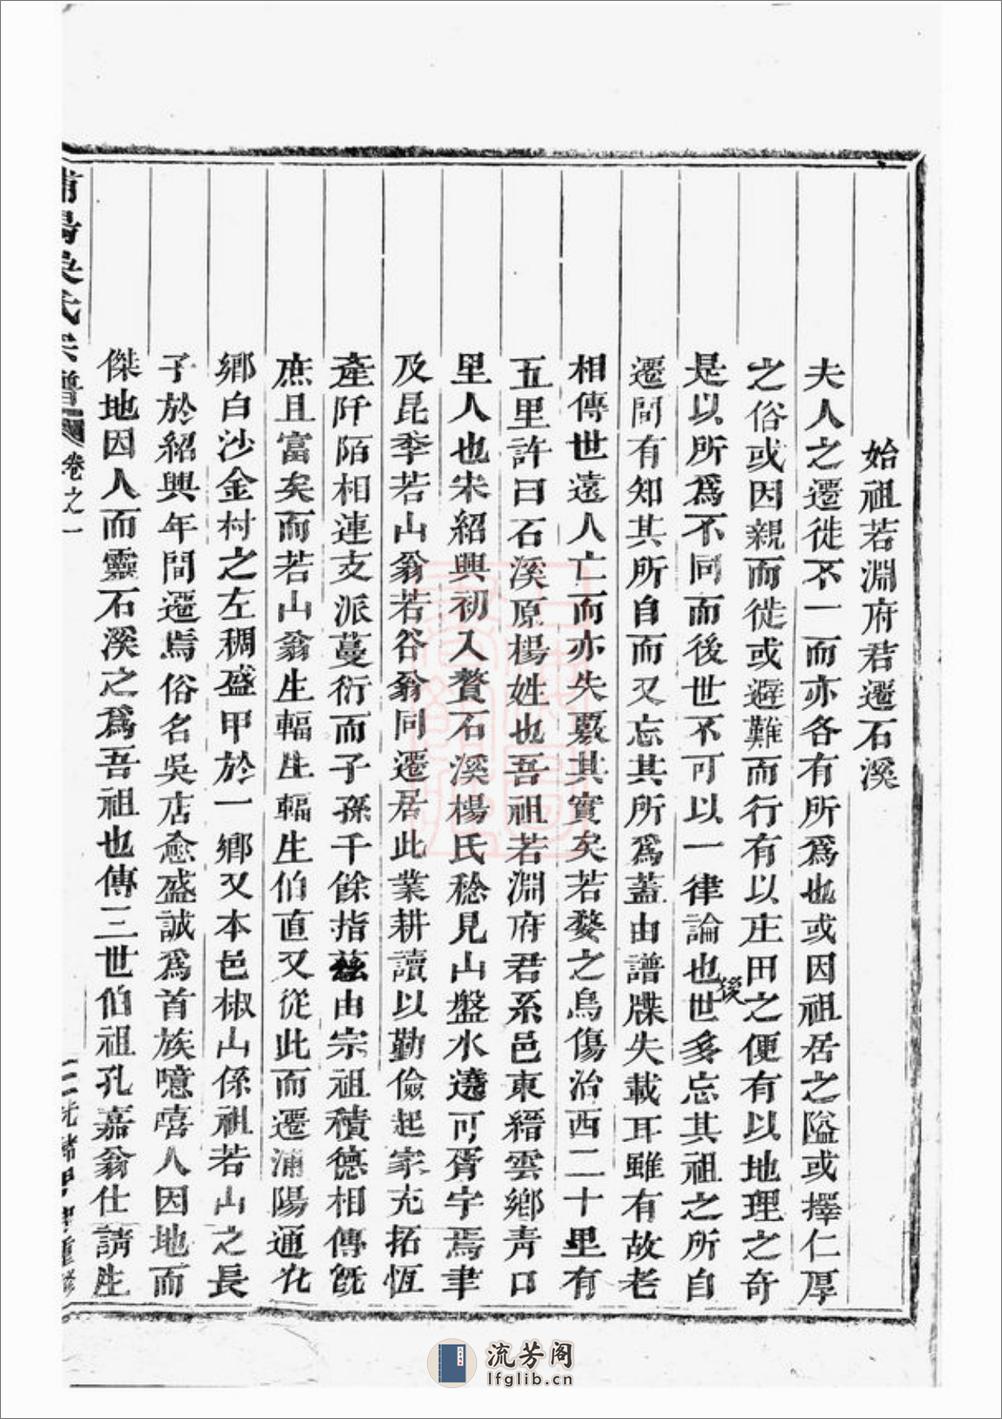 始祖若淵府君遷石溪
夫人之遷徙不一而亦各有所爲也或因祖居之隘或擇仁厚
之俗或因親而徙或避難而行有以庄田之便有以地理之奇
是以所爲不同而後世不可以一律論也後世多忘其祖之所自
遷間有知其所自而又忘其所爲蓋由譜牒失載耳雖有故老
相傳世遠人亡而亦失覈其實矣若婺之烏傷治西二十里有
五里許曰石溪原楊姓也吾祖若淵府君系邑東縉雲鄉青口
里人也宋紹興初入贅石溪楊氏稔見山盤水遶可胥宇焉聿
及昆季若山翁若谷翁同遷居此業耕讀以勤儉起家充拓恆
產阡陌相連支派蔓衍而子孫千餘指茲由宗祖積德相傳旣
庶且富矣而若山翁生輻生輻生伯直又從此而遷浦陽通化
鄉白沙金村之左稠盛甲於一鄉又本邑椒山係祖若山之長
子於紹興年間遷焉俗名吳店愈盛誠爲首族噫嘻人因地而
傑地因人而靈石溪之爲吾祖也傳三世伯祖孔嘉翁仕請生
浦陽吳氏宗譜 卷之一
流芳阁
lfglib.cn